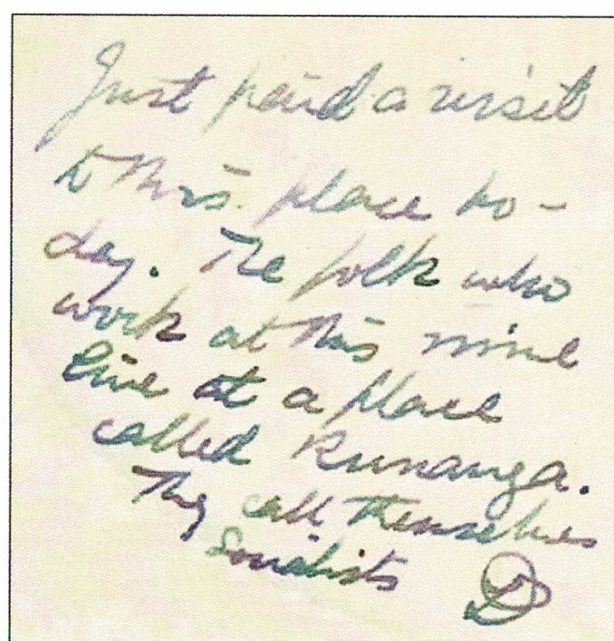 Just paid a visit
to this place to-
day. The folk who
work at this mine
live at a place
called Runanga.
They call themselves
Socialists D